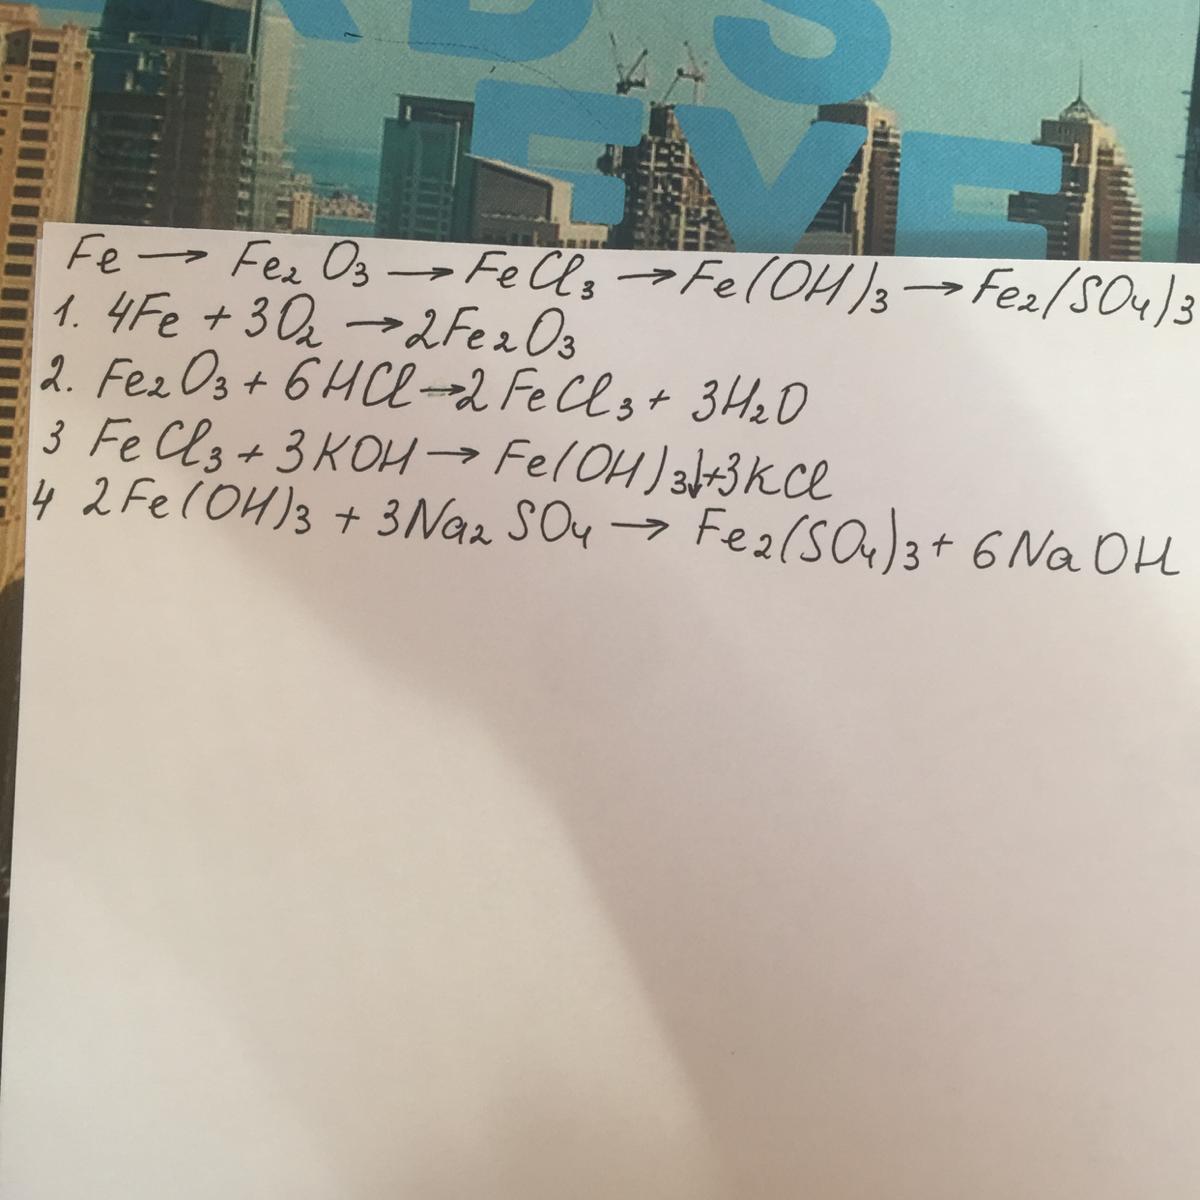 RD'S
EYE
Fe → Fe₂O₃ → FeCl₃ → Fe(OH)₃ → Fe₂(SO₄)₃
1. 4Fe + 3O₂ → 2Fe₂O₃
2. Fe₂O₃ + 6HCl → 2FeCl₃ + 3H₂O
3 FeCl₃ + 3KOH → Fe(OH)₃↓ + 3KCl
4 2Fe(OH)₃ + 3Na₂SO₄ → Fe₂(SO₄)₃ + 6NaOH